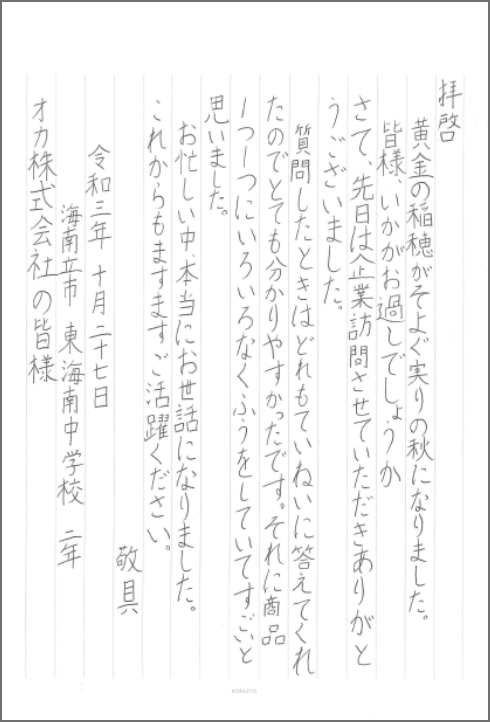 拝啓
黄金の稲穂がそよぐ実りの秋になりました。
皆様、いかがお過しでしょうか
さて、先日は企業訪問させていただきありがと
うございました。
質問したときはどれもていねいに答えてくれ
たのでとても分かりやすかったです。それに商品
一つ一つにいろいろなくふうをしていてすごいと
思いました。
お忙しい中、本当にお世話になりました。
これからもますますご活躍ください。
敬具
令和三年 十月二十七日
海南市立 東海南中学校 二年
オカ株式会社の皆様
KOKUYO